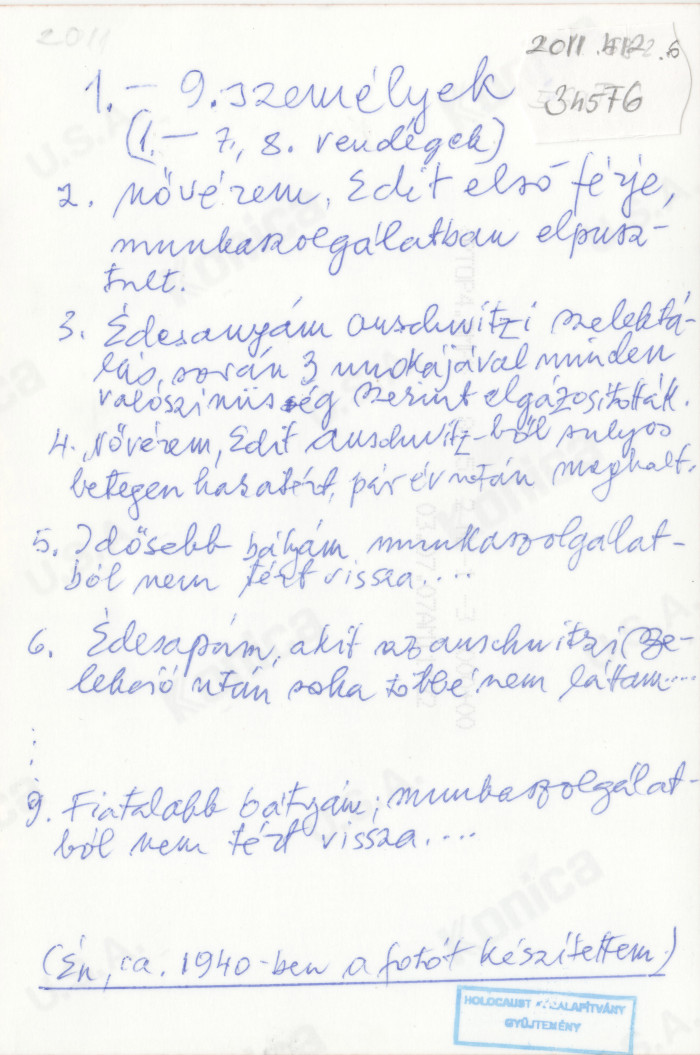 2011
2011.
34576
1. – 9. személyek
(1. – 7, 8. vendégek)
2. nővérem, Edit első férje,
munkaszolgálatban elpusz-
tult.
3. Édesanyám auschwitzi szelektá-
lás, során 3 unokájával minden
valószinüség szerint elgázosították.
4. Nővérem, Edit Auschwitz-ből sulyos
betegen hazatért, pár év után meghalt.
5. Idősebb bátyám munkaszolgálat-
ból nem tért vissza....
6. Édesapám, akit az auschwitzi sze-
lekció után soha többé nem láttam....
9. Fiatalabb bátyám, munkaszolgálat-
ból nem tért vissza....
(Én, ca. 1940-ben a fotót készítettem.)
HOLOCAUST KÖZALAPÍTVÁNY
GYŰJTEMÉNY
Konica
U.S.A.